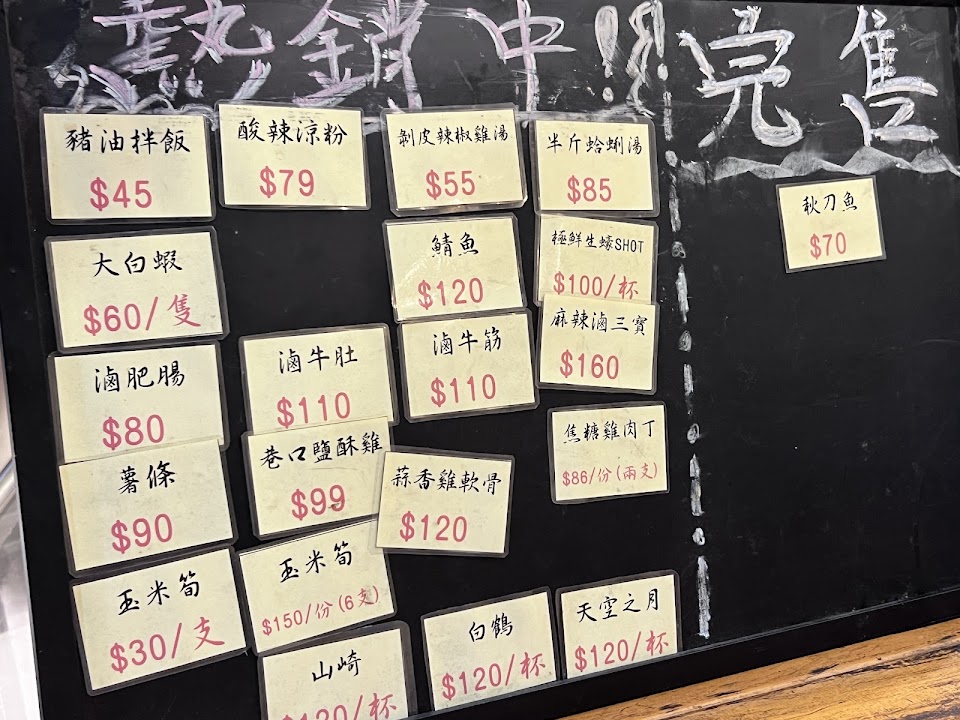 熱銷中!!
完售
豬油拌飯
$45
酸辣涼粉
$79
剝皮辣椒雞湯
$55
半斤蛤蜊湯
$85
秋刀魚
$70
大白蝦
$60/隻
鯖魚
$120
極鮮生蠔SHOT
$100/杯
滷肥腸
$80
滷牛肚
$110
滷牛筋
$110
麻辣滷三寶
$160
薯條
$90
巷口鹽酥雞
$99
蒜香雞軟骨
$120
焦糖雞肉丁
$86/份(兩支)
玉米筍
$30/支
玉米筍
$150/份(6支)
山崎
$120/杯
白鶴
$120/杯
天空之月
$120/杯